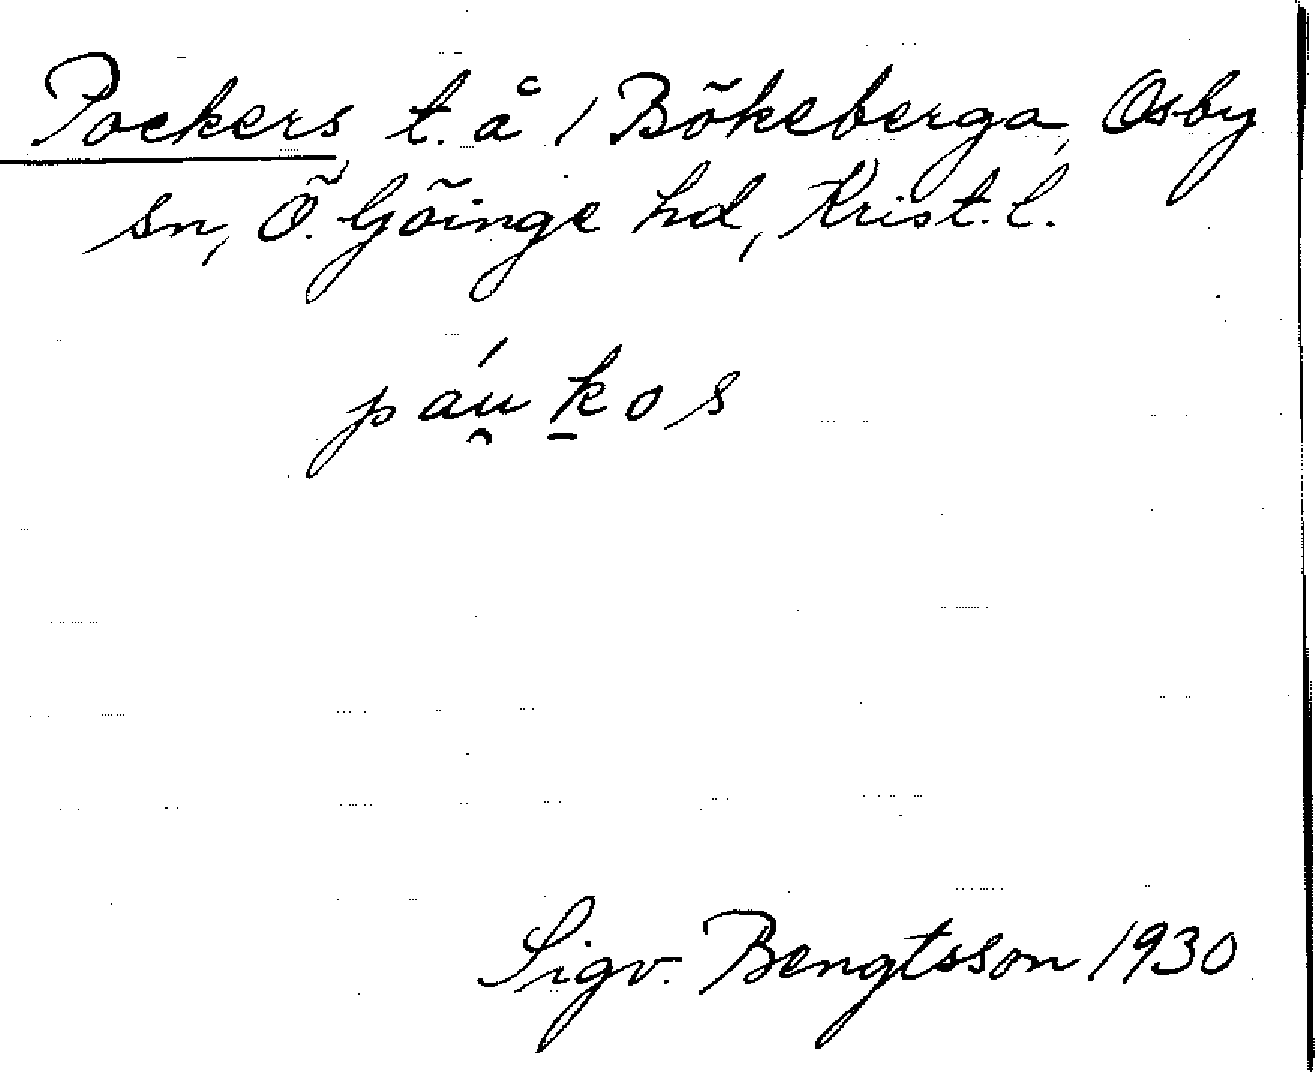 Pockers t. å 1 Bökeberga, Osby
sn, Ö. Göinge hd, Krist. l.
páu̯ḵos
Sigv. Bengtsson 1930